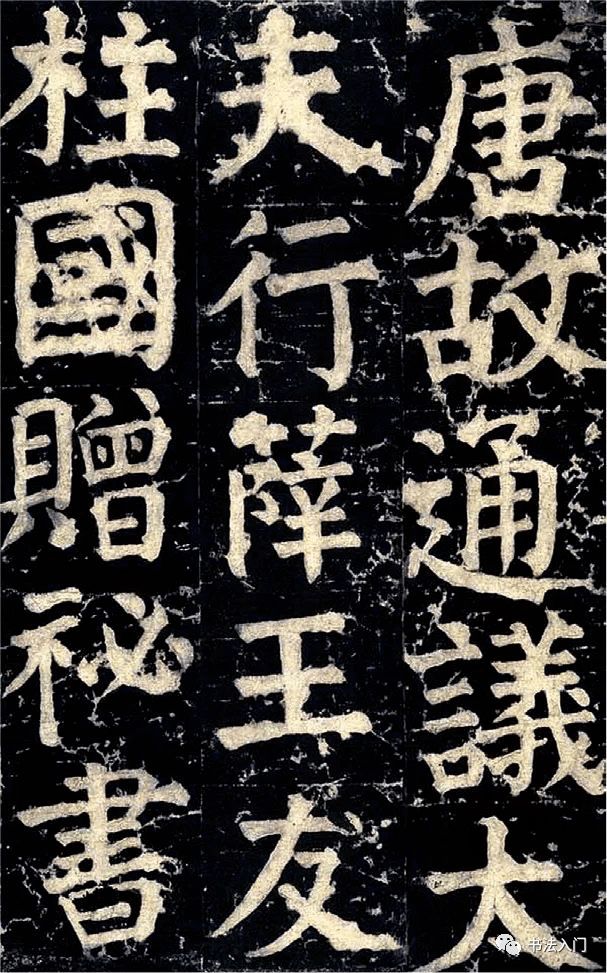 唐故通議大
夫行薛王友
柱國贈祕書
书法入门